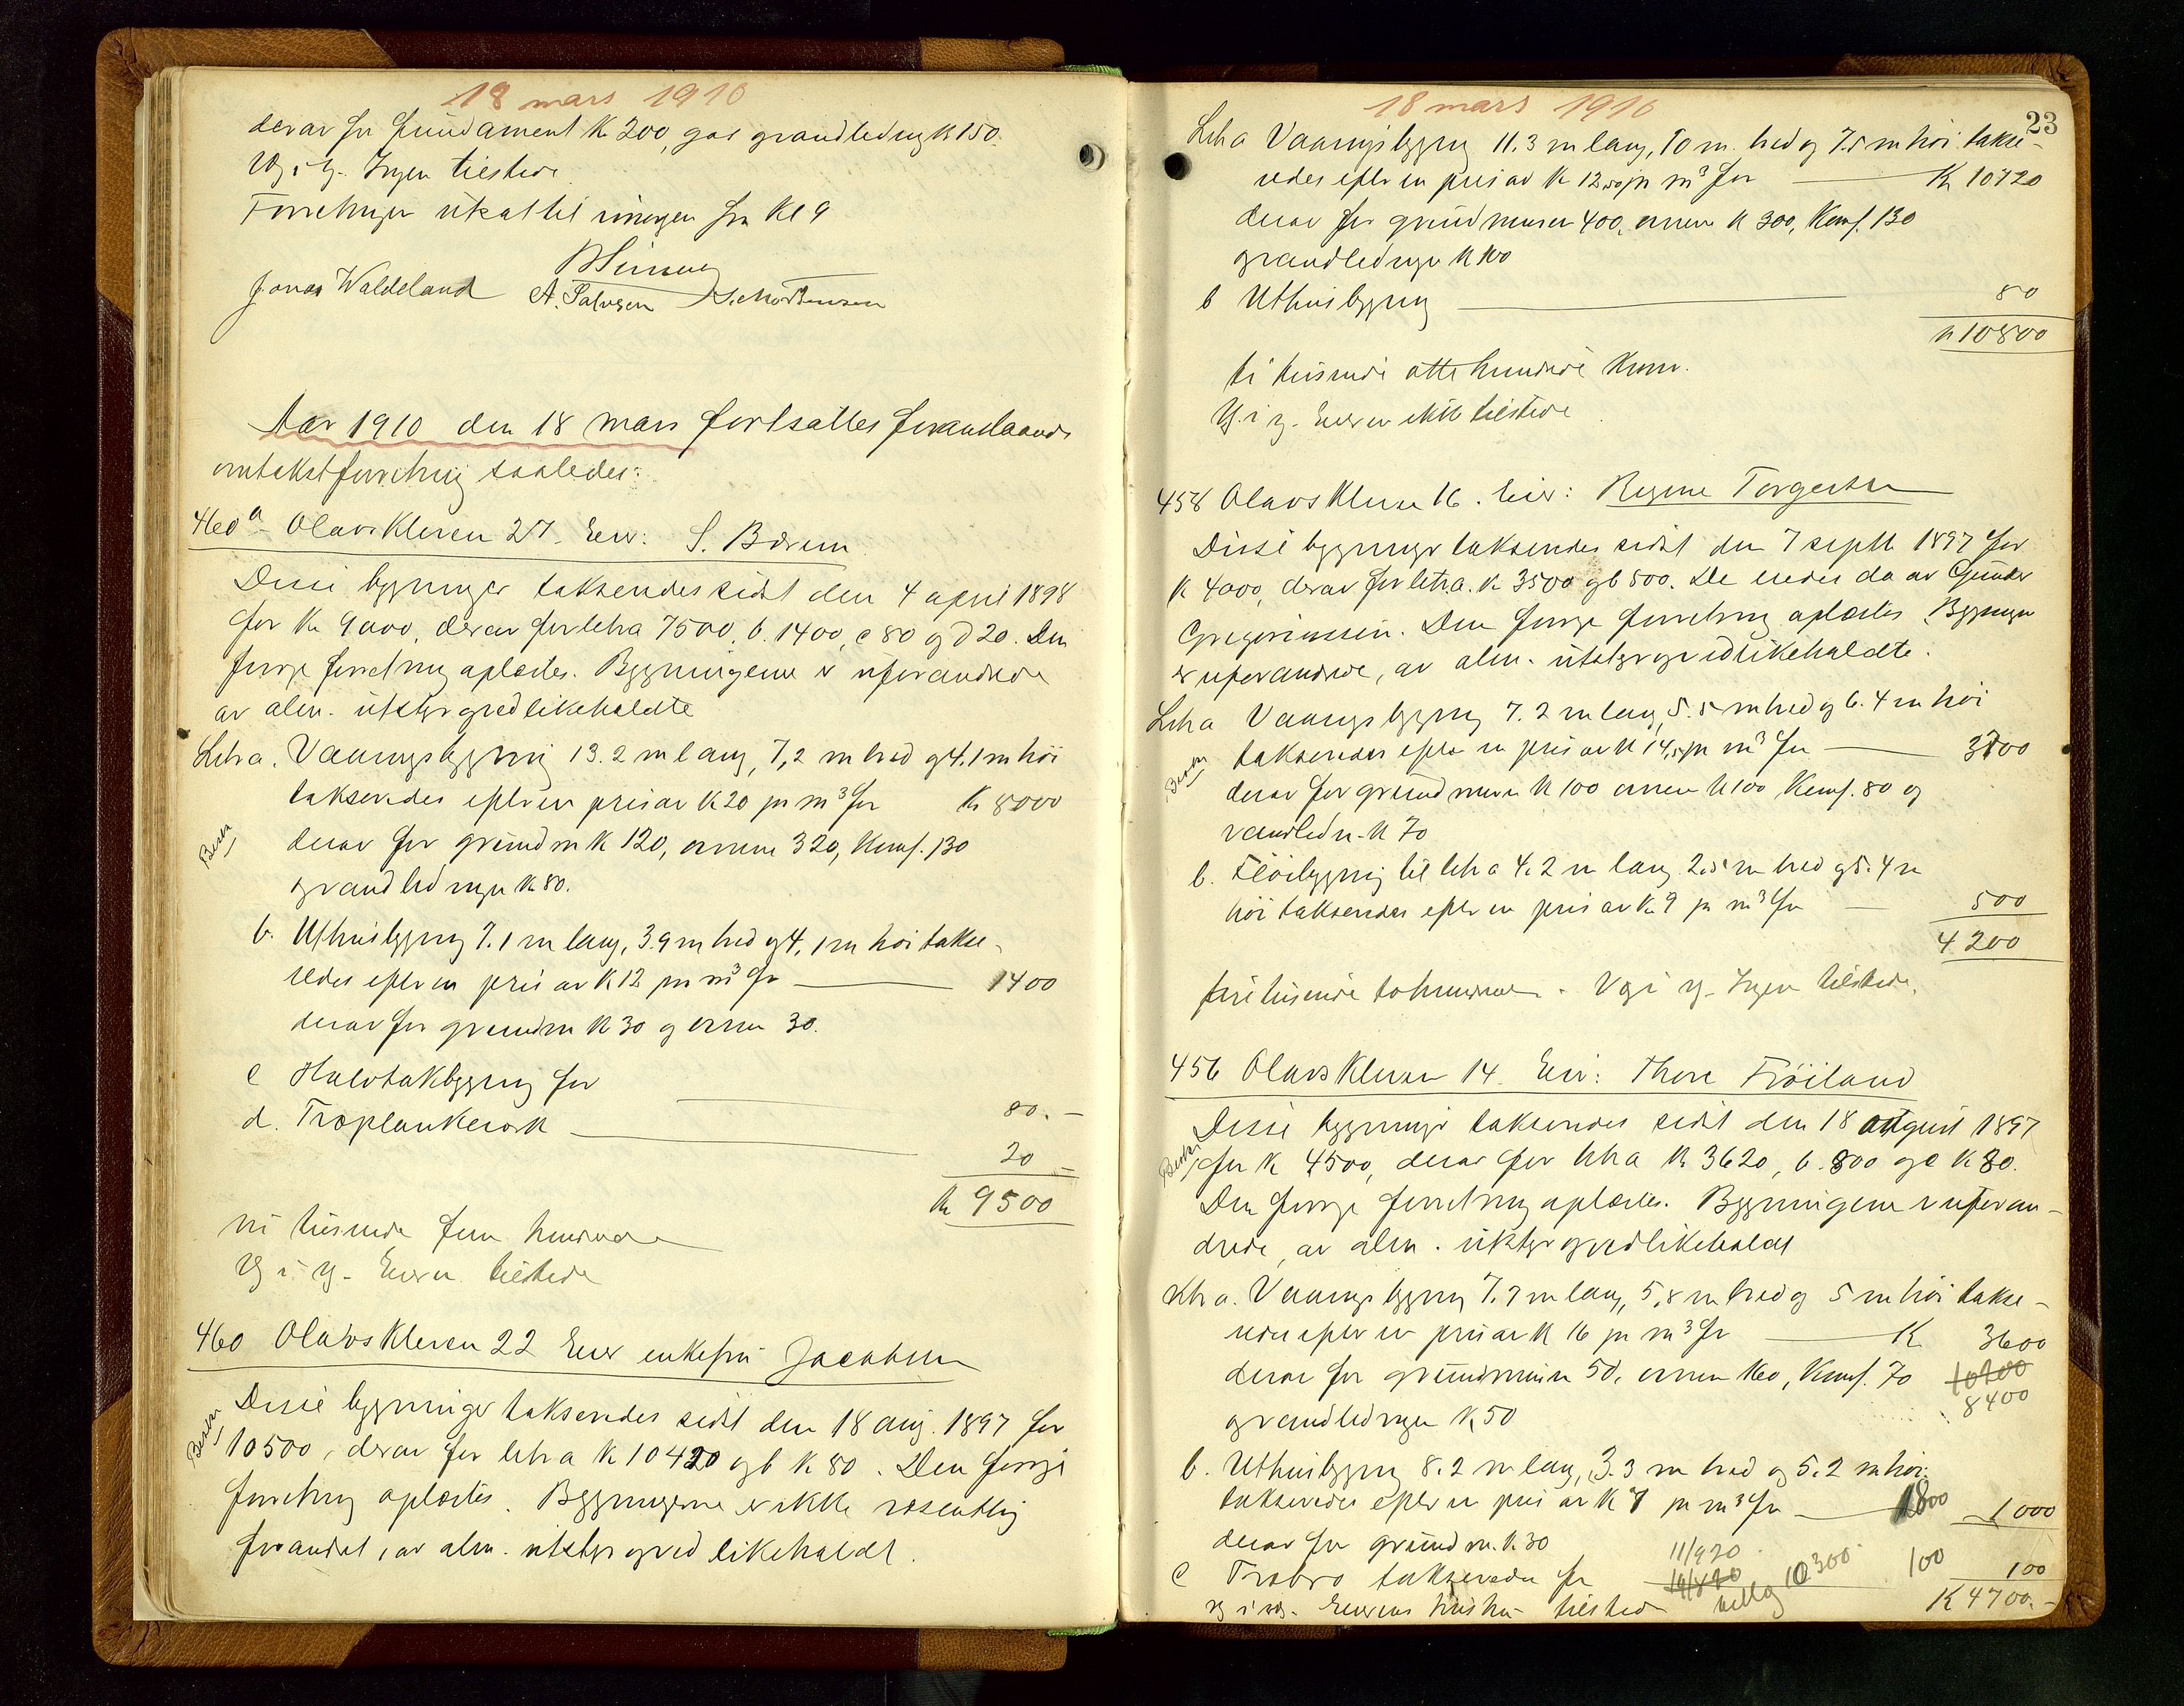 18 mars 1910
derav for fundament K 200, gas og vandledning K 150.
Vg i g. Ingen tilstede
Forretningen utsat til imorgen fra Kl 9
Jonas Waldeland A. Salvesen S. Mortensen
Aar 1910 den 18 mars fortsattes foranstaaende
omtakstforretning saaledes:
460a Olavskleven 27. Eier: S. Bærum
Disse bygninger taksertes sidst den 4 april 1898
for Kr 9000, derav for letra 7500, b. 1400, c 80 og d 20. Den
forrige forretning oplæstes. Bygningerne er uforandrede
av alm. utstyr og vedlikeholdte
Litra. Vaaningsbygning 13.2 m lang, 7,2 m bred og 4.1 m høi
takseredes efter en pris av K 20 pr m³ for Kr 8000
derav for grundm K 120, ovnene 320, Komf. 130
og vandledningen K 80.
b. Uthusbygning 7.1 m lang, 3.9 m bred og 4,1 m høi takse-
redes efter en pris av K 12 pr m³ for 1400
derav for grundm K 30 og ovnen 30.
c Halvtakbygning for 80.-
d. Træplankeværk 20
Kr 9500
ni tusinde fem hundrede
Vg i g. Eieren tilstede
460 Olavskleven 22 Eier enkefru Jacobsen
Disse bygninger takseredes sidst den 18 aug. 1897 for
10500, derav for letra K 10420 og b K 80. Den forrige
forretning oplæstes. Bygningerne er ikke væsentlig
forandret, av alm. utstyr og vedlikeholdt.
18 mars 1910
23
Litra Vaaningsbygning 11.3 m lang, 10 m bred og 7.5 m høi takse-
redes efter en pris av K 12,50 pr m³ for K 10720
derav for grundmuren 400, ovnene K 300, Komf. 130
og vandledningen K 100
b Uthusbygning 80
K 10800
ti tusinde otte hundrede Kroner.
Vg i g. Eieren ikke tilstede
458 Olavskleven 16. Eier: Regine Torgersen
Disse bygninger takseredes sidst den 7 septb 1897 for
K 4000, derav for letra. K 3500 og b 500. De eiedes da av Gunder
Gregoriussen. Den forrige forretning oplæstes. Bygningen
er uforandrede, av alm. utstyr og vedlikeholdte.
Litra Vaaningsbygning 7.2 m lang, 5.5 m bred og 6.4 m høi
takseredes efter en pris av K 14,5 pr m³ for 3700
derav for grundmuren K 100 ovnene K 100, Komf. 80 og
vandledn. K 70
b. Fløibygning til letra 4.2 m lang 2.5 m bred og 5.4 m
høi takseredes efter en pris av K 9 pr m³ for 500
4200
fire tusinde tohundrede. Vg i g. Ingen tilstede.
456 Olavskleven 14. Eier: Thore Frøiland
Disse bygninger takseredes sidst den 18 august 1897
for K 4500, derav for letra K 3620, b. 800 og c K 80.
Den forrige forretning oplæstes. Bygningerne er uforan-
drede, av alm. utstyr og vedlikeholdt
Litra. Vaaningsbygning 7.7 m lang, 5,8 m bred og 5 m høi takse-
redes efter en pris av K 16 pr m³ for K 3600
derav for grundmuren 50, ovnen 160, Komf. 70 10200
og vandledningen K 50 8400
b. Uthusbygning 8.2 m lang, 3.3 m bred og 5.2 m høi
takseredes efter en pris av K 7 pr m³ for 1800 1000
derav for grundm. K 30 11/920
c Trabro takseredes for 10300 100 100
Vg i g. Eierens hustru tilstede K 4700.-